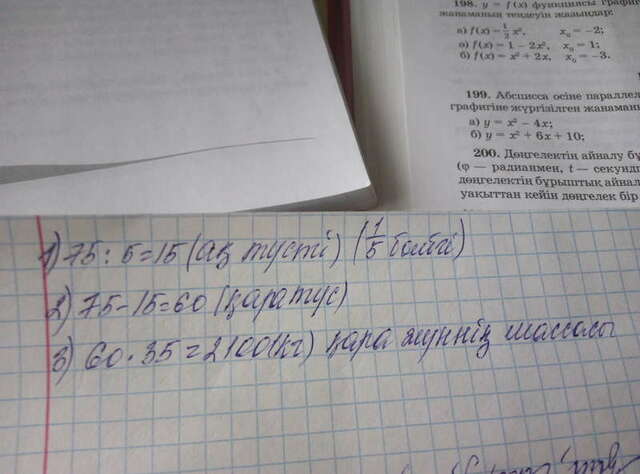 198. y = f(x) функциясы графи
жанаманың теңдеуін жазыңдар:
а) f(x) = 1/2 x², x₀ = −2;
ә) f(x) = 1 − 2x², x₀ = 1;
б) f(x) = x² + 2x, x₀ = −3.
199. Абсцисса осіне параллел
графигіне жүргізілген жанаман
а) y = x² − 4x;
б) y = x² + 6x + 10;
200. Дөңгелектің айналу бұ
(φ — радианмен, t — секунд
дөңгелектің бұрыштық айнал
уақыттан кейін дөңгелек бір
1) 75 : 5 = 15 (ақ түсті) (1/5 бөлігі)
2) 75 − 15 = 60 (қара түс)
3) 60 · 35 = 2100 (кг) қара жүннің массасы